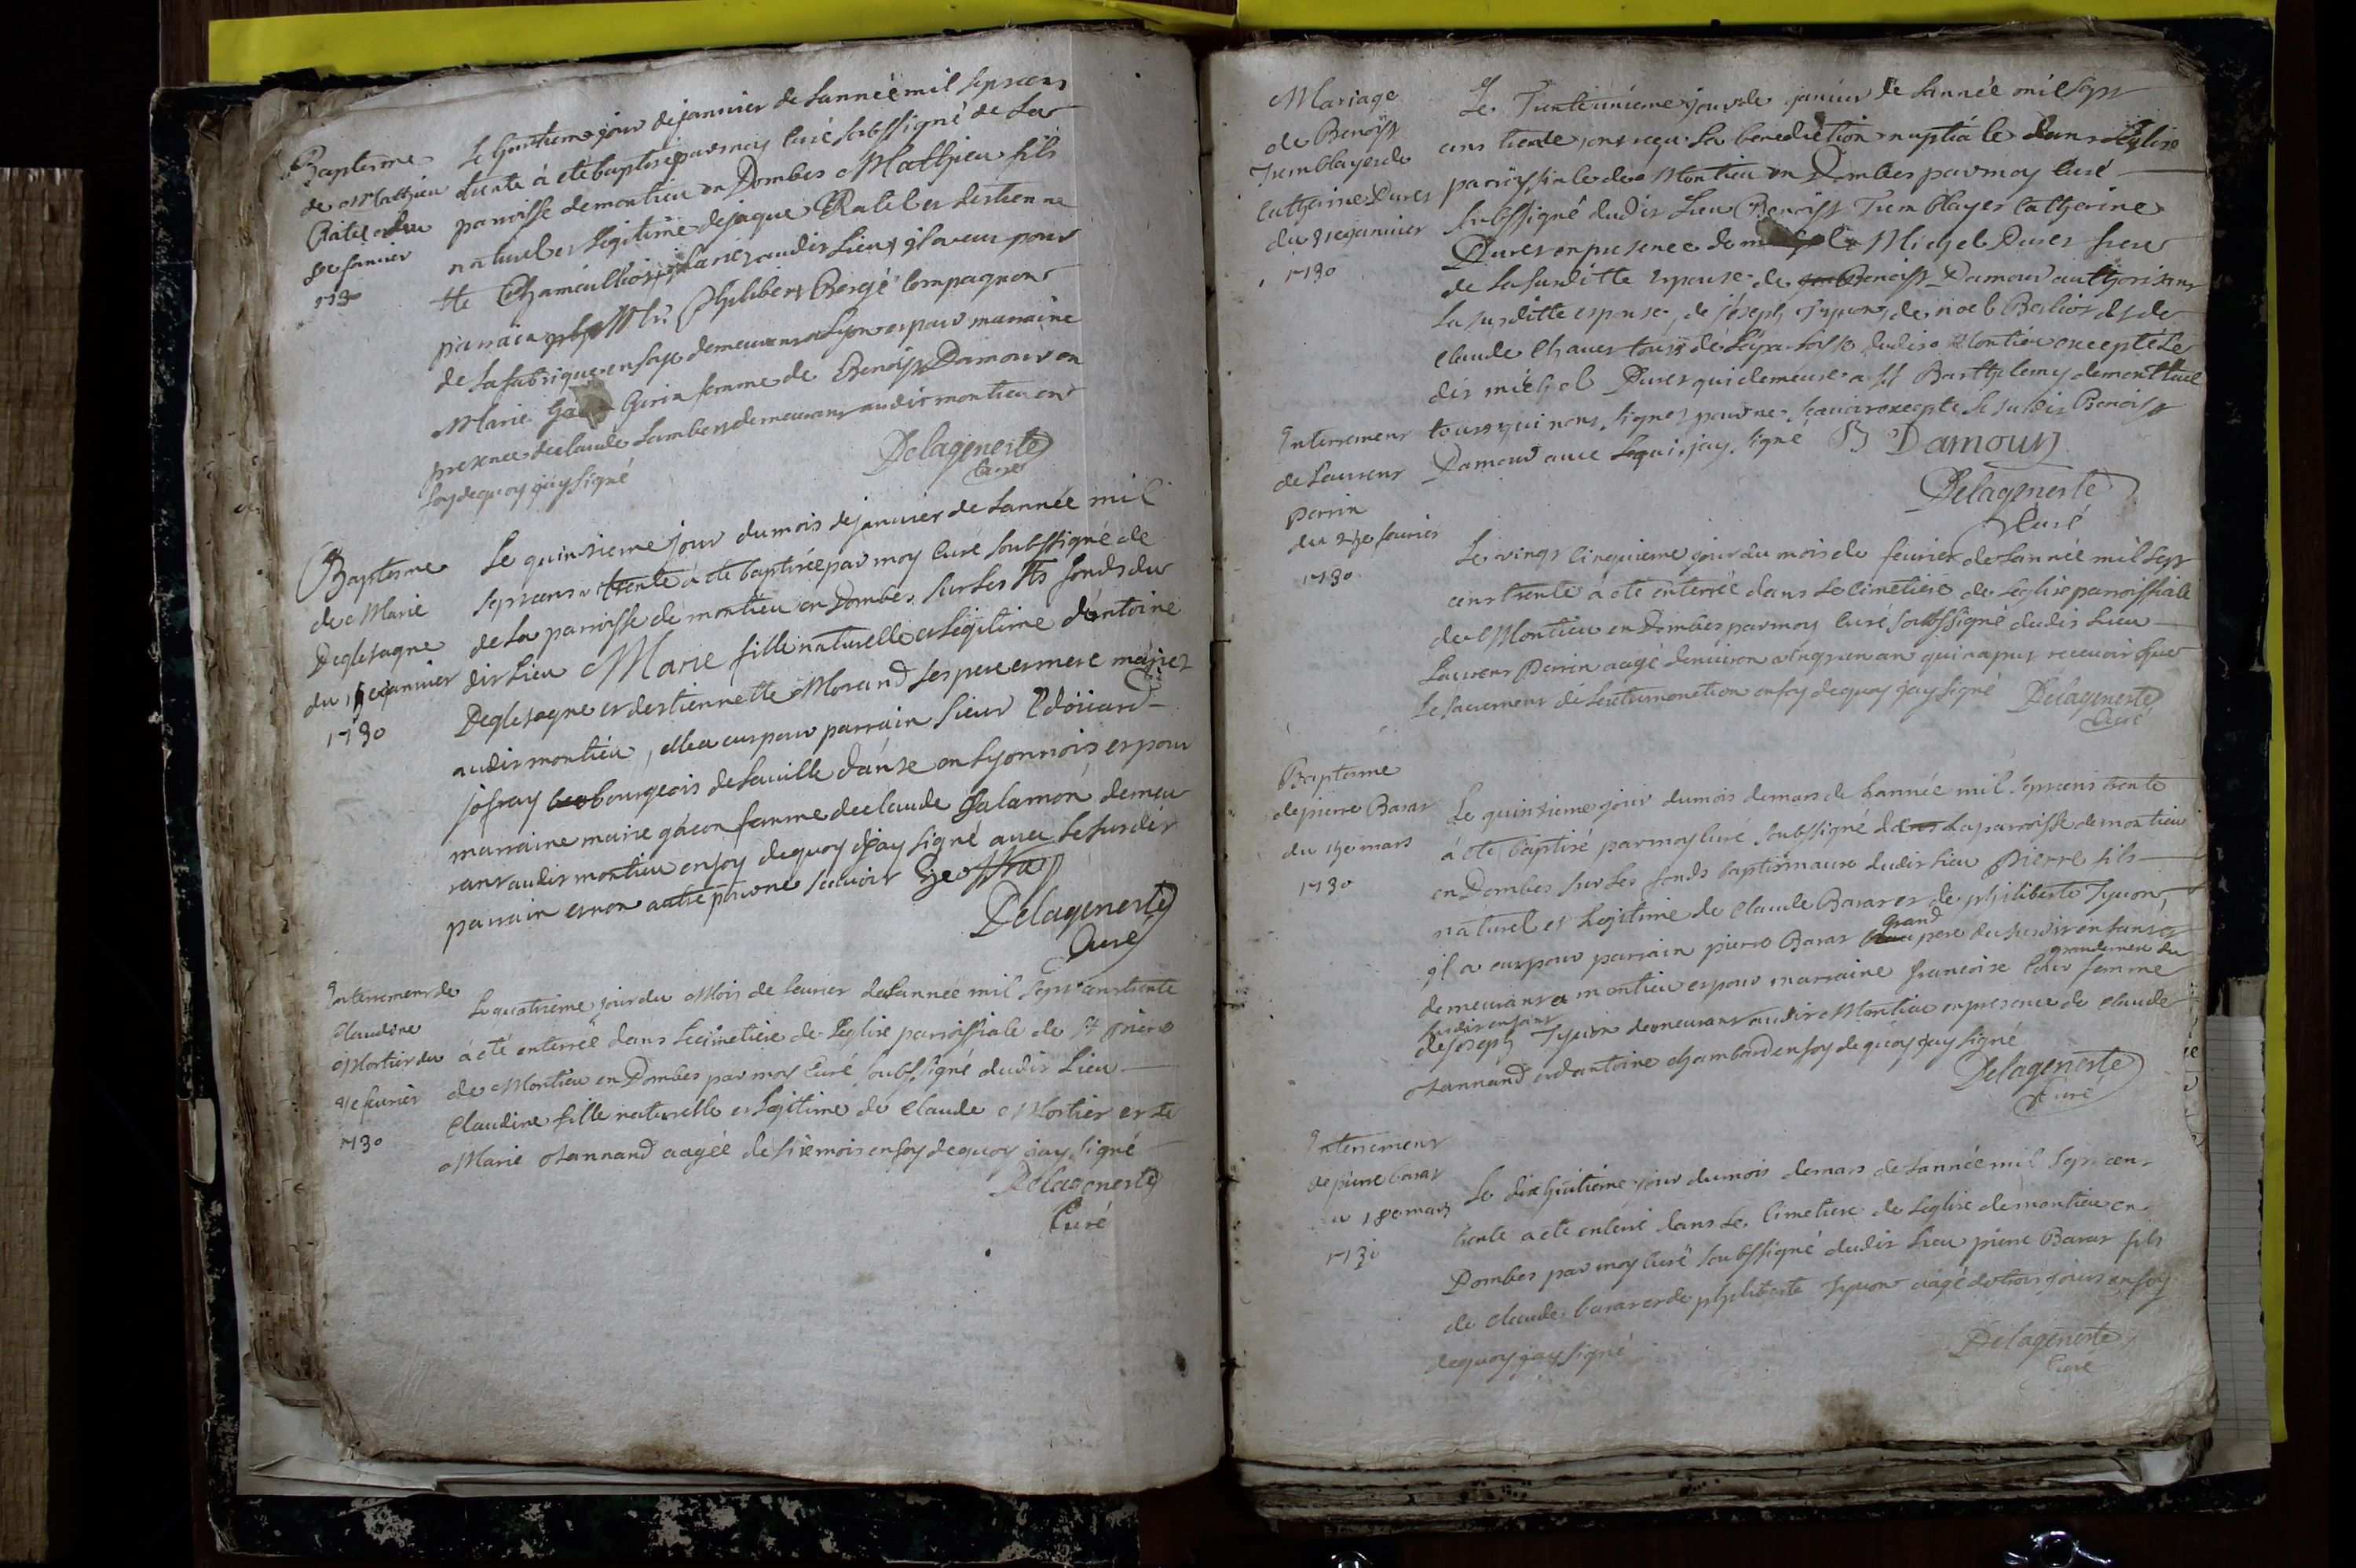 Baptesme
de Mathieu
Ratel du
8e januier
1730
Le huitieme jour de januier de Lannéé mil sept cens
trente à eté baptisé par moy Curé soubssigné de La
paroisse de montieu en Dombes Mathieu fils
naturel et Legitime de jaque Ratel et destienne
tte mariez audit Lieu, il a eu pour
parrain Philibert Bergé Compagnon
de La fabrique en soye demeurant a Lyon et pour marraine
Marie Girin femme de Benoist Damour en
presence de claude Lambert demeurant audit montieu en
foy de quoy j'ay signé
Delageneste
Curé
Baptesme
de Marie
Deglesagne
du 15e januier
1730
Le quinzieme jour du mois de januier de Lannéé mil
sept cens trente à eté baptiséé par moy Curé soubssigné de
de La paroisse de montieu en Dombes sur Les fonds du
dit Lieu Marie fille naturelle et Legitime d'antoine
Deglesagne et destiennette Morand ses pere et mere mariez
audit montieu, elle a eu pour parrain sieur Edöüard
jofray bourgeois de La ville d'anse en Lyonnois et pour
marraine marie gacon femme de claude Salamon demeu
rant audit montieu en foy de quoy j'ay signé auec Le susdit
parrain et non autre pour ne scauoir Geoffray
Delageneste
Curé
Enterrement de
Claudine
Mortier du
4e feurier
1730
Le quatrieme jour du Mois de feurier de Lannéé mil sept cens trente
à eté enterréé dans Le cimetiere de Leglise paroissiale de St pierre
de Montieu en Dombes par moy Curé soubssigné dudit Lieu
Claudine fille naturelle et Legitime de Claude Mortier et de
Marie Jannand aagéé de six mois en foy de quoy j'ay signé
Delageneste
Curé
Mariage
de Benoist
Tremblay et de
Catherine Duret
du 31e januier
1730
Le Trente unieme jour de januier de Lannéé mil sept
cens trente ont reçu La benediction nuptiale dans L'Eglise
paroissiale de Montieu en Dombes par moy Curé
soubssigné dudit Lieu Benoist Tremblay et Catherine
Duret en presence de Michel Duret frere
de La susditte epouse de Benoist Damour authorisant
La susditte espouse, de joseph Tyuon, de noel Berlior et de
Claude Chauer tous de La paroisse dudit Montieu excepté Le
dit michel Duret qui demeure a St Barthelemy de montluel
tous qui n'ont signez pour ne scauoir excepté Le susdit Benoist
Damour auec Lequel j'ay signé B Damour
Delageneste
Curé
Enterrement
de Laurent
Perrin
du 25e feurier
1730
Le vingt Cinquieme jour du mois de feurier de Lannéé mil sept
cens trente à eté enterréé dans Le cimetiere de Leglise paroissiale
de Montieu en Dombes par moy Curé soubssigné dudit Lieu
Laurent Perrin aagé denuiron qui n'a put receuoir que
Le sacrement de Lextremonction en foy de quoy j'ay signé Delageneste
Curé
Baptesme
de pierre Barat
du 15e mars
1730
Le quinzieme jour du mois de mars de Lannéé mil sept cens trente
à eté baptisé par moy Curé soubssigné de La paroisse de montieu
en Dombes sur Les fonds baptismaux dudit Lieu Pierre fils
naturel et Legitime de Claude Barat et de philiberte Tyuon,
il a eu pour parrain pierre Barat grand pere du susdit enfant et
demeurant a montieu et pour marraine francoise femme
grandmere du
susdit enfant
de joseph Tyuon demeurant audit Montieu en presence de Claude
Jannand et d'antoine chambard en foy de quoy j'ay signé
Delageneste
Curé
Enterrement
de pierre barat
du 18e mars
1730
Le dixhuitieme jour du mois de mars de Lannéé mil sept cens
trente a eté enterré dans Le Cimetiere de Leglise de montieu en
Dombes par moy Curé soubssigné dudit Lieu pierre Barat fils
de Claude barat et de philiberte Tyuon aagé de trois jours en foy
de quoy j'ay signé
Delageneste
Curé